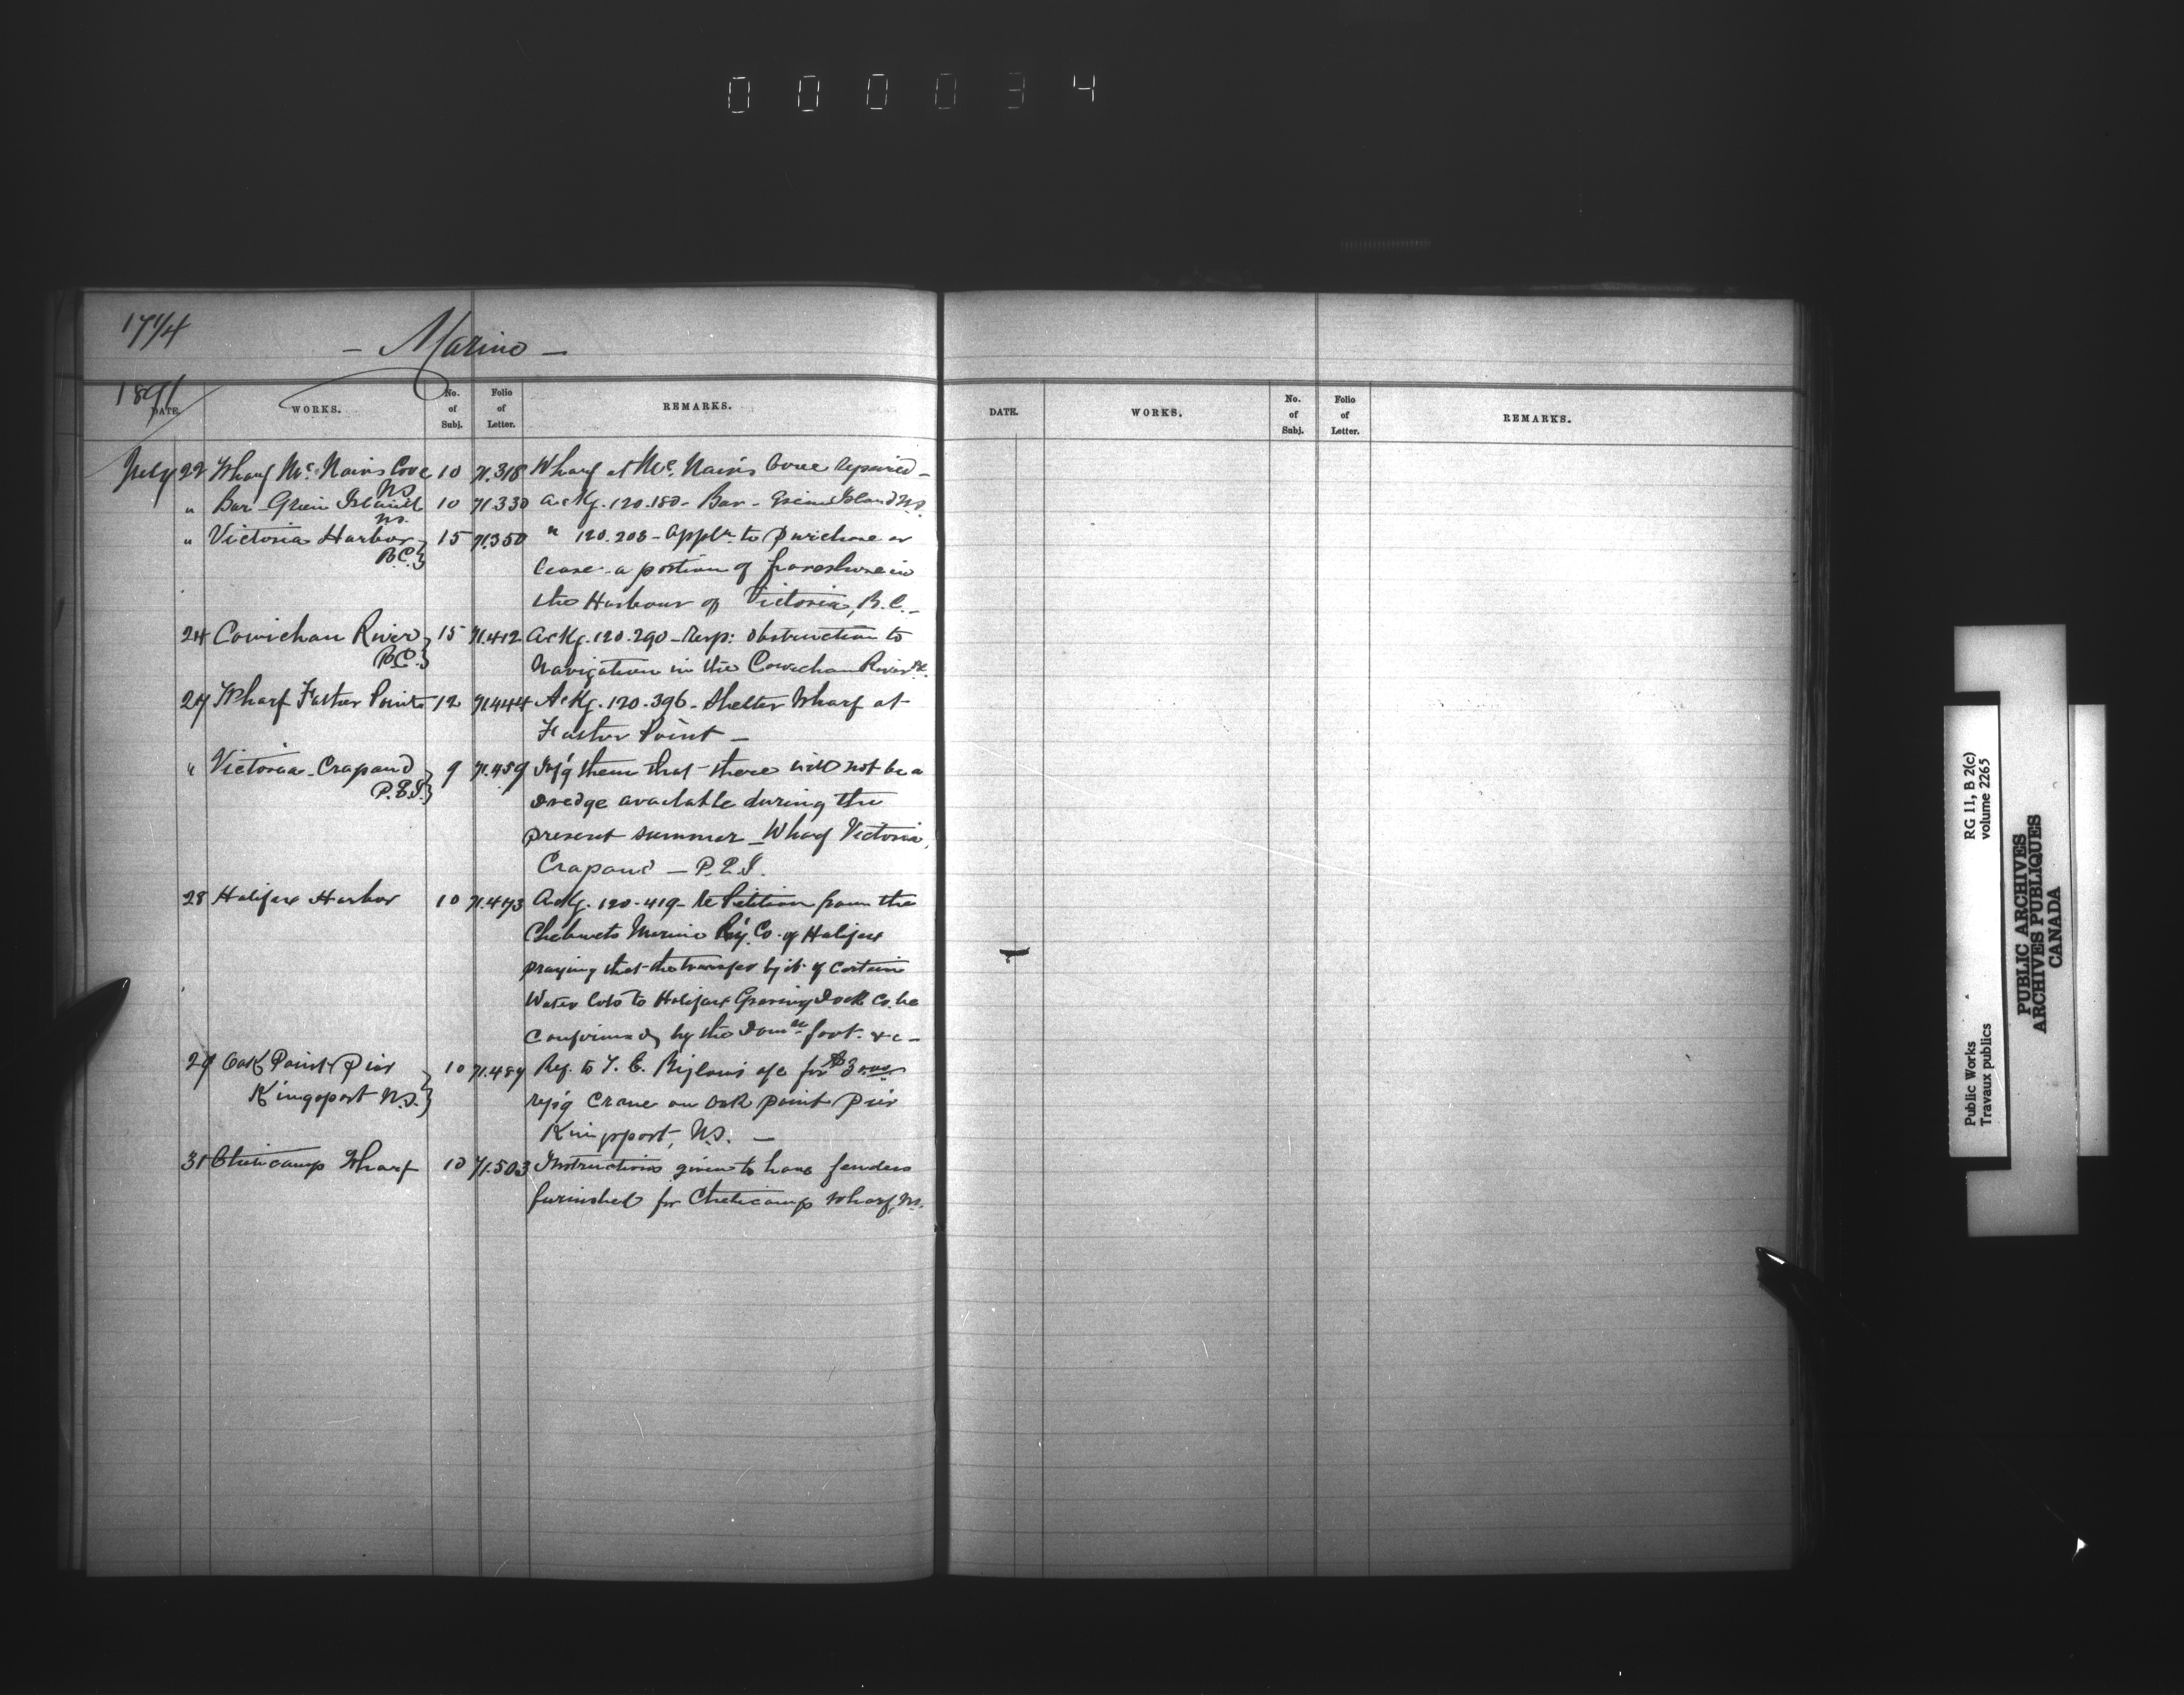 000034
17 1/4
- Marine -
1891
DATE. WORKS. No. of Subj. Folio of Letter. REMARKS.
July 22 Wharf Mc. Nairs Cove N.S. 10 71.318 Wharf at Mc. Nair's Cove repaired -
" Bar Green Island N.S. 10 71330 Ackg. 120.180 - Bar - Green Island N.S.
" Victoria Harbor B.C.} 15 71350 " 120.208 - Appln. to purchase or
lease a portion of foreshore in
the Harbour of Victoria, B.C. -
24 Cowichan River B.C.} 15 71.412 Ackg. 120.290 - Resp: obstruction to
navigation in the Cowichan River B.C.
27 Wharf Father Point 12 71444 Ackg. 120.396 - Shelter Wharf at
Father Point -
" Victoria - Crapaud P.E.I.} 9 71.459 Inf'g them that there will not be a
dredge available during the
present summer - Wharf Victoria,
Crapaud - P.E.I.
28 Halifax Harbor 10 71.473 Ackg. 120.419 - Re Petition from the
Chebucto Marine Ry. Co. of Halifax
praying that the transfer by it of certain
Water lots to Halifax Graving Dock Co. be
confirmed by the Domn Govt. &c -
29 Oak Point Pier 10 71.489 Ref. to T. E. Biglow's a/c for $3
Kingsport N.S.} rep'g Crane on Oak Point Pier
Kingsport, N.S. -
31 Cheticamp Wharf 10 71.503 Instructions given to have fenders
furnished for Cheticamp Wharf, N.S.
DATE. WORKS. No. of Subj. Folio of Letter. REMARKS.
Public Works RG 11, B 2(c)
Travaux publics volume 2265
PUBLIC ARCHIVES
ARCHIVES PUBLIQUES
CANADA